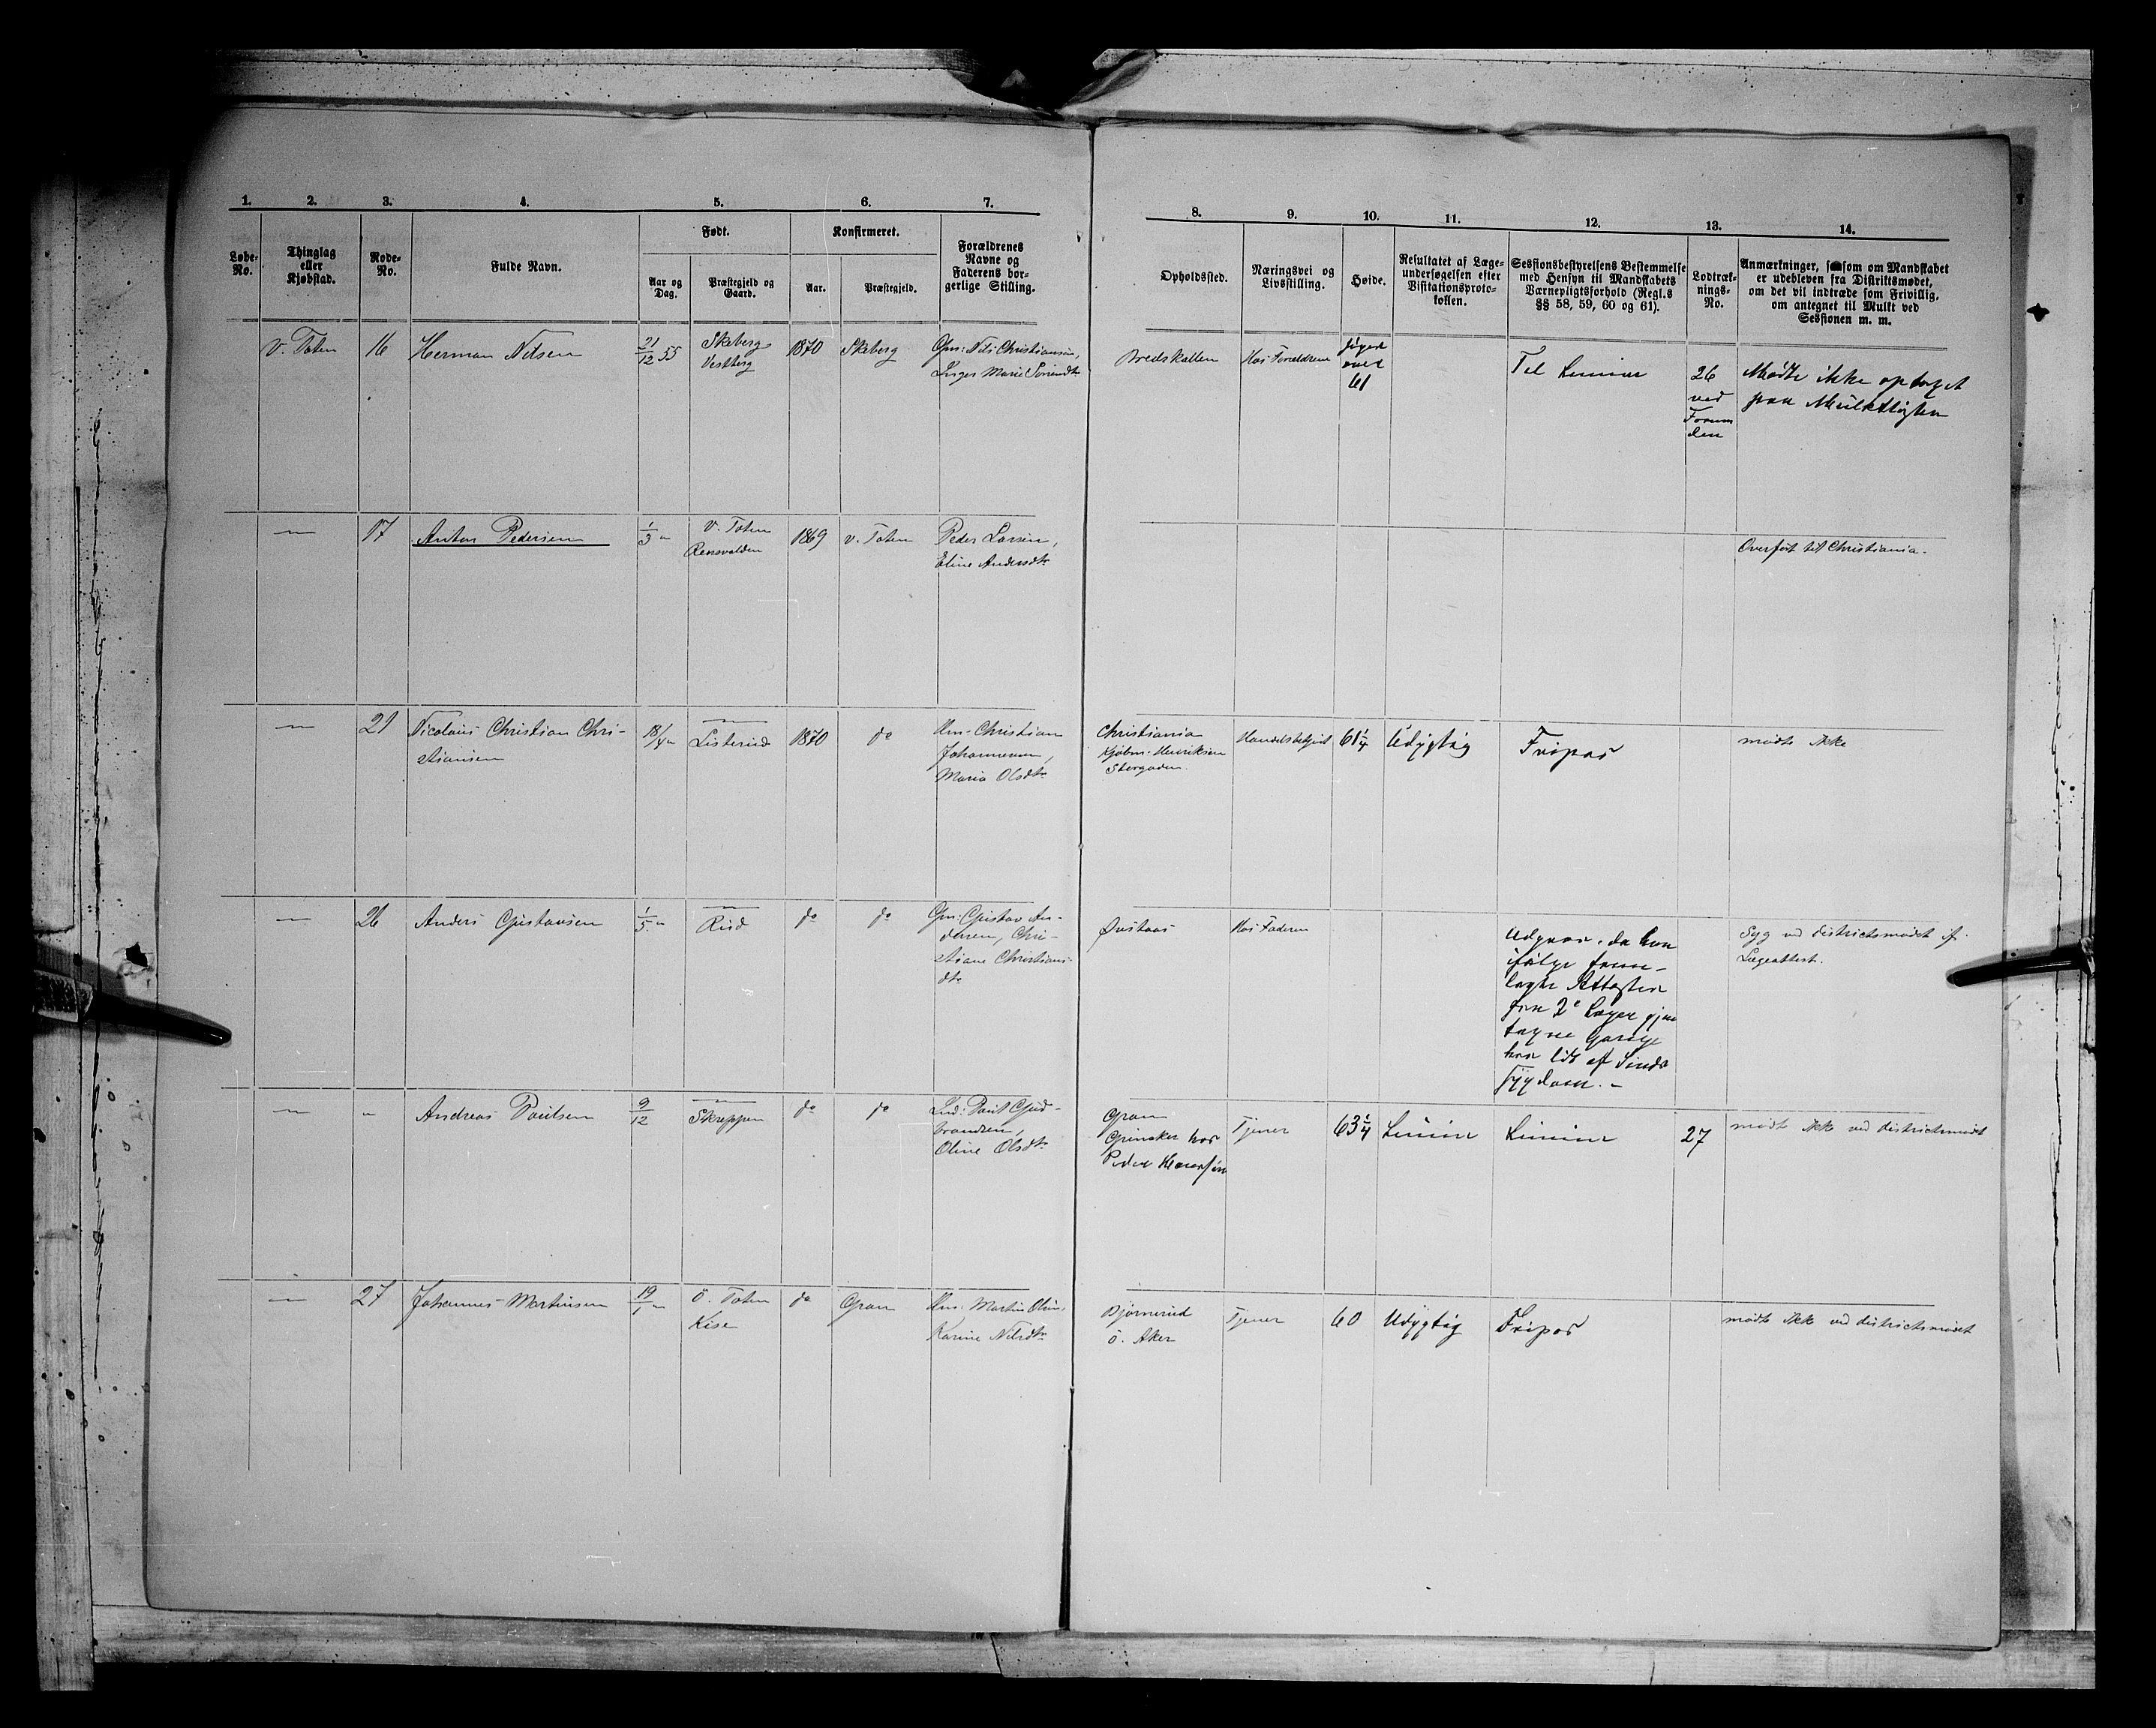 1. 2. 3. 4. 5. 6. 7.
Løbe-No.
Thinglag eller Kjøbstad.
Rode-No.
Fulde Navn.
Født.
Aar og Dag.
Præstegjeld og Gaard.
Konfirmeret.
Aar.
Præstegjeld.
Forældrenes Navne og Faderens borgerlige Stilling.
8. 9. 10. 11. 12. 13. 14.
Opholdssted.
Næringsvei og Livsstilling.
Høide.
Resultatet af Lægeundersøgelsen efter Visitationsprotokollen.
Sessionsbestyrelsens Bestemmelse med Hensyn til Mandskabets Værnepligtsforhold (Regl.s §§ 58, 59, 60 og 61).
Lodtræknings-No.
Anmærkninger, saasom om Mandskabet er udebleven fra Distriktsmødet, om det vil indtræde som Frivillig, om antegnet til Mulkt ved Sessionen m. m.
V. Toten 16 Herman Nilsen 21/12 55 Skeberg Vestberg 1870 Skeberg Gm: Nils Christiansen,
Inger Marie
Bredskallen Hos Forældrene
over
61
Til Linien
26
ved
Møtte ikke optaget
paa Mulktligsten
— 17 Anton Pedersen 1/3 " V. Toten 1869 V. Toten Peder Larsen,
Eline Andersdtr
Overført til Christiania.
— 21 Nicolaus Christian Chri-
stiansen
18/4 " — Listerud 1870 do Hm. Christian
Johannesen,
Maria Olsdtr
Christiania
Kjøbm. Henriksen
Storgaden.
Handelsbetjent 61 1/4 Udygtig Fripas mødte ikke
— 26 Anders Gustavsen 1/5 " — Rud do do Gm: Gustav An-
dersen, Chri-
stiane Christians-
dtr
Hos Faderen
Udgaar, da han
ifølge frem-
lagte Attester
fra 2de Læger gjen
tagne Gange
har lidt af Sinds
sygdom. –
Syg ved districtsmødet if.
Lægeattest.
— " Andreas Paulsen 9/12 — Skreppen do do Ind: Paul Gud-
brandsen,
Oline Olsdtr
Gran
hos
Peder
Tjener 63 1/4 Linien Linien 27 mødte ikke ved districtsmødet
— 27 Johannes Martinsen 19/1 " Ö. Toten
Kise
do Gran Hm. Martin Olsen,
Karine Nilsdtr
Bjørnerud
Ö. Aker
Tjener 60 Udygtig Fripas mødte ikke ved districtsmødet